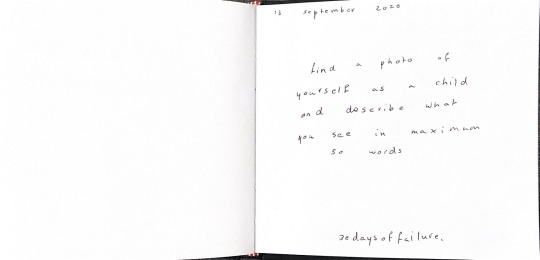 13 september 2020
find a photo of
yourself as a child
and describe what
you see in maximum
50 words
30 days of failure.